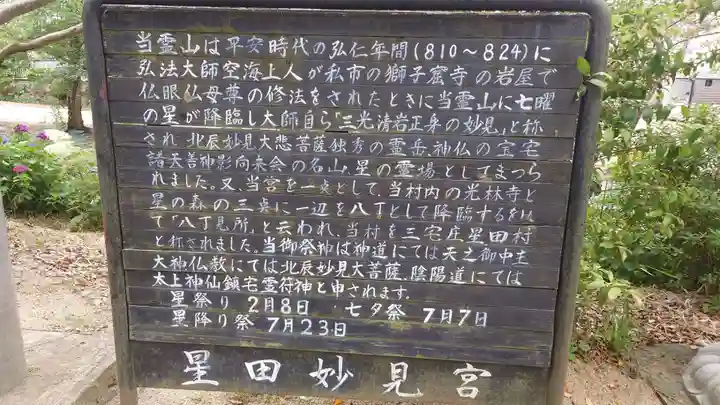 当霊山は平安時代の弘仁年間(810～824)に
弘法大師空海上人が私市の獅子窟寺の岩屋で
仏眼仏母尊の修法をされたときに当霊山に七曜
の星が降臨し大師自ら「三光清岩正身の妙見」と称
され北辰妙見大悲菩薩独秀の霊岳、神仏の宝宅
諸天善神影向来会の名山、星の霊場としてまつら
れました。又、当宮を一点として、当村内の光林寺と
星の森の三点に一辺を八丁として降臨するをい
て「八丁見所」と云われ、当村を三宅庄星田村
と称されました。当御祭神は神道にては天之御中主
大神仏教にては北辰妙見大菩薩、陰陽道にては
太上神仙鎮宅霊符神と申されます。
星祭り 2月8日 七夕祭 7月7日
星降り祭 7月23日
星田妙見宮